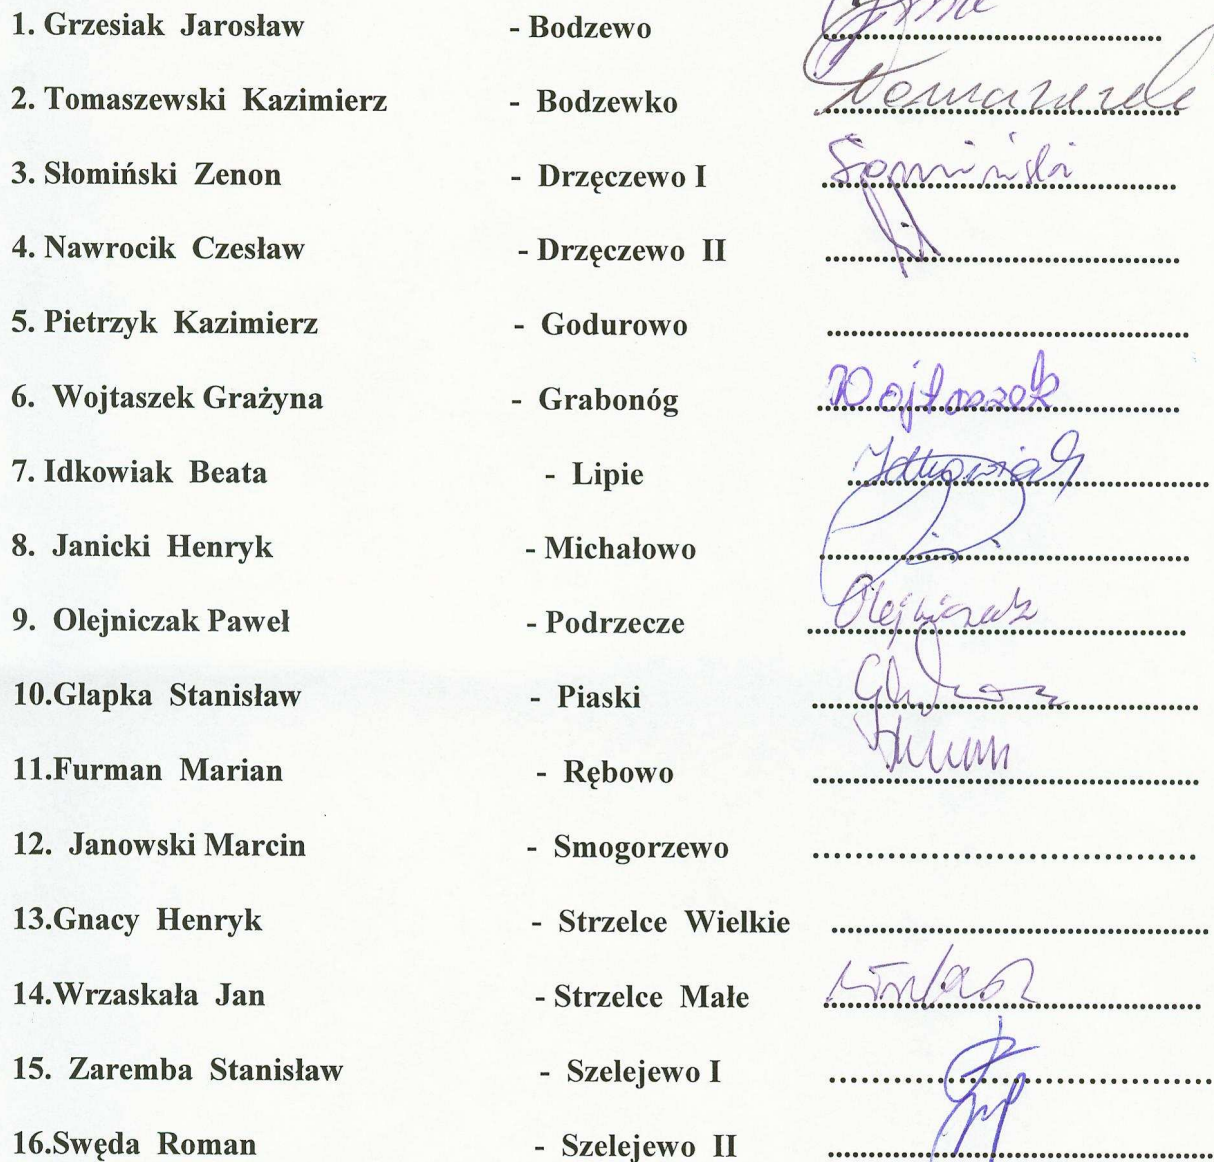 1. Grzesiak Jarosław - Bodzewo ........................................
2. Tomaszewski Kazimierz - Bodzewko ........................................
3. Słomiński Zenon - Drzęczewo I Słomiński
4. Nawrocik Czesław - Drzęczewo II ........................................
5. Pietrzyk Kazimierz - Godurowo ........................................
6. Wojtaszek Grażyna - Grabonóg Wojtaszek
7. Idkowiak Beata - Lipie Idkowiak
8. Janicki Henryk - Michałowo ........................................
9. Olejniczak Paweł - Podrzecze Olejniczak
10.Glapka Stanisław - Piaski ........................................
11.Furman Marian - Rębowo ........................................
12. Janowski Marcin - Smogorzewo ........................................
13.Gnacy Henryk - Strzelce Wielkie ........................................
14.Wrzaskała Jan - Strzelce Małe ........................................
15. Zaremba Stanisław - Szelejewo I ........................................
16.Swęda Roman - Szelejewo II ........................................